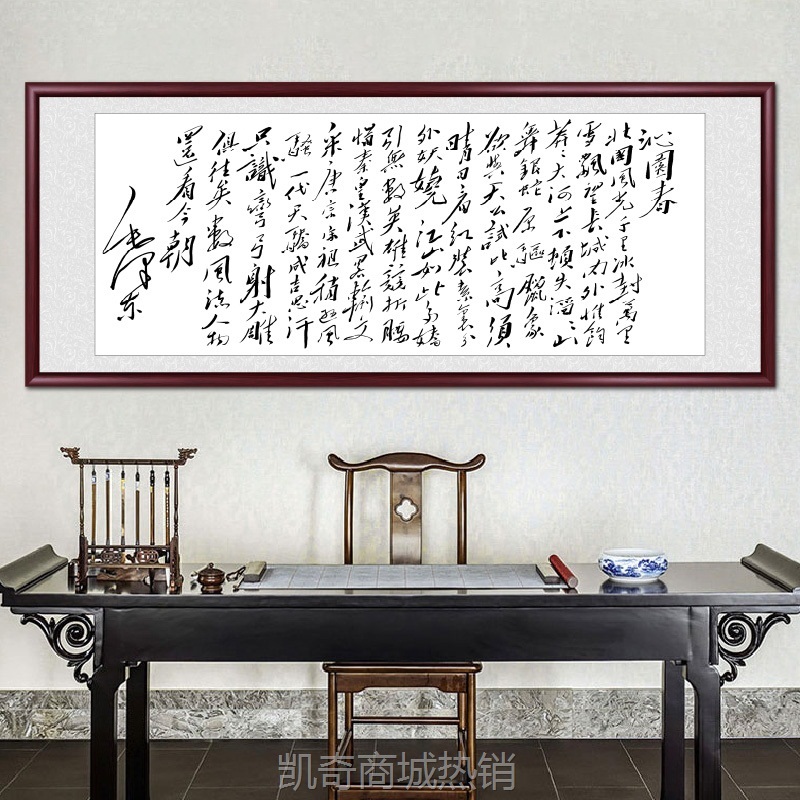 沁園春
北國風光千里冰封萬里
雪飄望長城內外惟餘
莽々大河上下頓失滔々山
舞銀蛇原驅臘象
欲與天公試比高須
晴日看紅裝素裹分
外妖嬈江山如此多嬌
引無數英雄競折腰
惜秦皇漢武略輸文
采唐宗宋祖稍遜風
騷一代天驕成吉思汗
只識彎弓射大雕
俱往矣數風流人物
還看今朝
毛澤东
凯奇商城热销